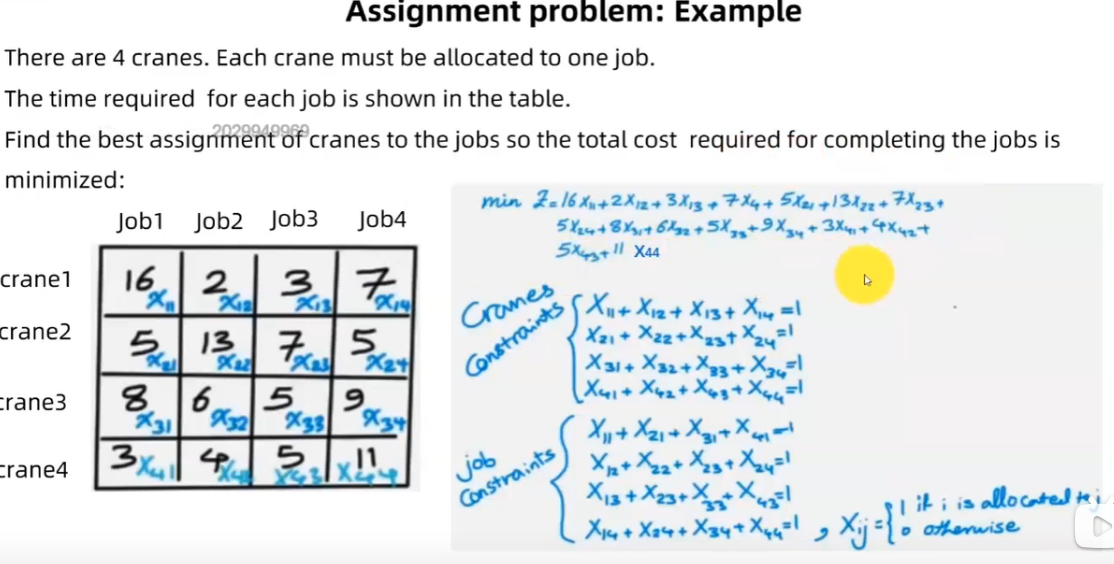 Assignment problem: Example
There are 4 cranes. Each crane must be allocated to one job.
The time required for each job is shown in the table.
Find the best assignment of cranes to the jobs so the total cost required for completing the jobs is
2029949969
minimized:
Job1 Job2 Job3 Job4
crane1 16 X11 2 X12 3 X13 7 X14
crane2 5 X21 13 X22 7 X23 5 X24
crane3 8 X31 6 X32 5 X33 9 X34
crane4 3 X41 4 X42 5 X43 11 X44
min Z=16X11+2X12+3X13+7X4+5X21+13X22+7X23+
5X24+8X31+6X32+5X33+9X34+3X41+4X42+
5X43+11 X44
Cranes Constraints
X11+X12+X13+X14=1
X21+X22+X23+X24=1
X31+X32+X33+X34=1
X41+X42+X43+X44=1
job Constraints
X11+X21+X31+X41=1
X12+X22+X23+X24=1
X13+X23+X33+X43=1
X14+X24+X34+X44=1 , Xij={1 if i is allocated to j
0 otherwise